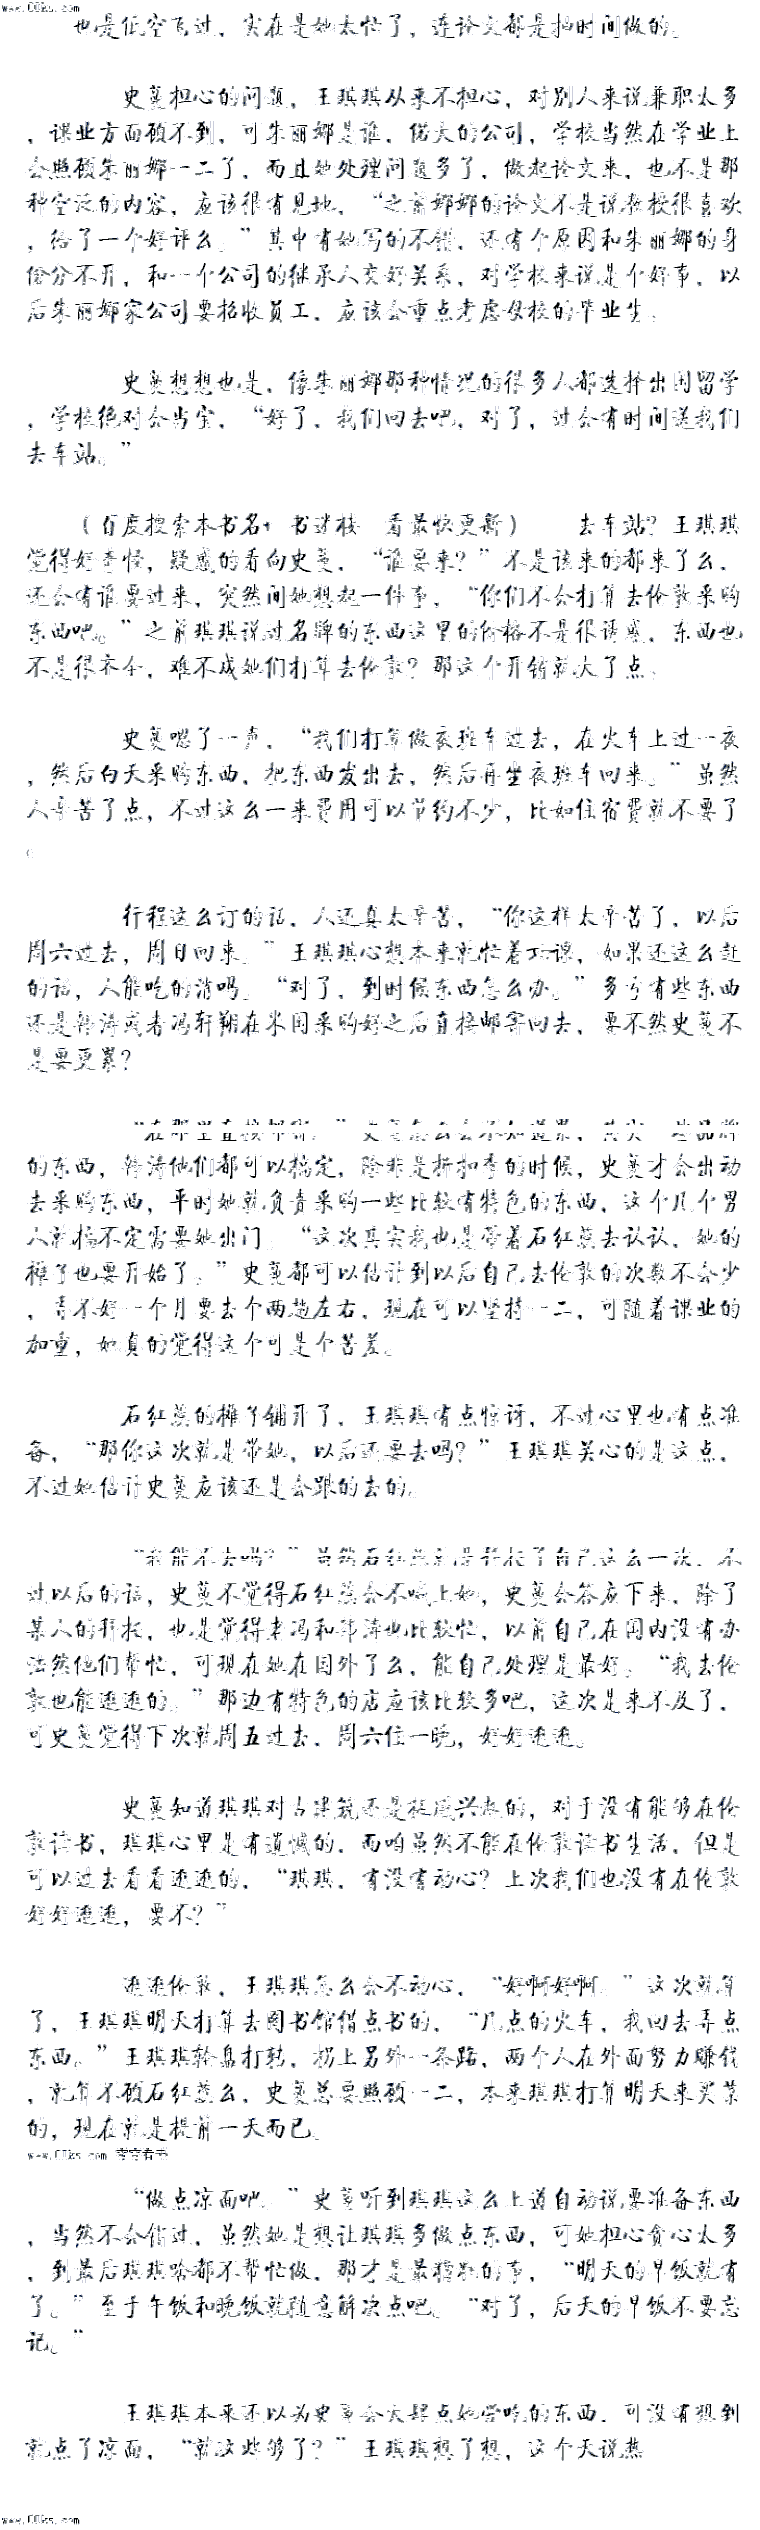 www.00ks.com
也是低空飞过，实在是她太忙了，连论文都是抽时间做的。
史蕒担心的问题，王琪琪从来不担心，对别人来说兼职太多
，课业方面顾不到，可朱丽娜是谁，偌大的公司，学校当然在学业上
会照顾朱丽娜一二了，而且她处理问题多了，做起论文来，也不是那
种空泛的内容，应该很有见地，“之前娜娜的论文不是说教授很喜欢
，给了一个好评么。”其中有她写的不错，还有个原因和朱丽娜的身
份分不开，和一个公司的继承人交好关系，对学校来说是个好事，以
后朱丽娜家公司要招收员工，应该会重点考虑母校的毕业生。
史蕒想想也是，像朱丽娜那种情况的很多人都选择出国留学
，学校绝对会当宝，“好了，我们回去吧，对了，过会有时间送我们
去车站。”
（百度搜索本书名+ 书迷楼 看最快更新） 去车站？王琪琪
觉得好奇怪，疑惑的看向史蕒，“谁要来？”不是该来的都来了么，
还会有谁要过来，突然间她想起一件事，“你们不会打算去伦敦采购
东西吧。”之前琪琪说过名牌的东西这里的价格不是很诱惑，东西也
不是很齐全，难不成她们打算去伦敦？那这个开销就大了点。
史蕒嗯了一声，“我们打算做夜班车过去，在火车上过一夜
，然后白天采购东西，把东西发出去，然后再坐夜班车回来。”虽然
人辛苦了点，不过这么一来费用可以节约不少，比如住宿费就不要了
。
行程这么订的话，人还真太辛苦，“你这样太辛苦了，以后
周六过去，周日回来。”王琪琪心想本来就忙着功课，如果还这么赶
的话，人能吃的消吗。“对了，到时候东西怎么办。”多亏有些东西
还是韩涛或者冯轩翔在米国采购好之后直接邮寄回去，要不然史蕒不
是要更累？
“在那里直接邮寄。”史蕒怎么会不知道累，其实一些品牌
的东西，韩涛他们都可以搞定，除非是折扣季的时候，史蕒才会出动
去采购东西，平时她就负责采购一些比较有特色的东西，这个几个男
人就搞不定需要她出门，“这次其实我也是带着石红蕊去认认，她的
摊子也要开始了。”史蕒都可以估计到以后自己去伦敦的次数不会少
，弄不好一个月要去个两趟左右，现在可以坚持一二，可随着课业的
加重，她真的觉得这个可是个苦差。
石红蕊的摊子铺开了，王琪琪有点惊讶，不过心里也有点准
备，“那你这次就是带她，以后还要去吗？”王琪琪关心的是这点，
不过她估计史蕒应该还是会跟的去的。
“我能不去吗？”虽然石红蕊只是拜托了自己这么一次，不
过以后的话，史蕒不觉得石红蕊会不喊上她，史蕒会答应下来，除了
某人的拜托，也是觉得老冯和韩涛也比较忙，以前自己在国内没有办
法然他们帮忙，可现在她在国外了么，能自己处理是最好。“我去伦
敦也能逛逛的。”那边有特色的店应该比较多吧，这次是来不及了，
可史蕒觉得下次就周五过去，周六住一晚，好好逛逛。
史蕒知道琪琪对古建筑还是挺感兴趣的，对于没有能够在伦
敦读书，琪琪心里是有遗憾的，而咱虽然不能在伦敦读书生活，但是
可以过去看看逛逛的，“琪琪，有没有动心？上次我们也没有在伦敦
好好逛逛，要不？”
逛逛伦敦，王琪琪怎么会不动心，“好啊好啊。”这次就算
了，王琪琪明天打算去图书馆借点书的，“几点的火车，我回去弄点
东西。”王琪琪轮盘打转，拐上另外一条路，两个人在外面努力赚钱
，就算不顾石红蕊么，史蕒总要照顾一二，本来琪琪打算明天来买菜
的，现在就是提前一天而已。
www.00ks.com 零零看书
“做点凉面吧。”史蕒听到琪琪这么上道自动说要准备东西
，当然不会错过，虽然她是想让琪琪多做点东西，可她担心贪心太多
，到最后琪琪啥都不帮忙做，那才是最糟糕的事，“明天的早饭就有
了。”至于午饭和晚饭就随意解决点吧。“对了，后天的早饭不要忘
记。”
王琪琪本来还以为史蕒会大肆点她爱吃的东西，可没有想到
就点了凉面，“就这些够了？”王琪琪想了想，这个天说热
www.00ks.com